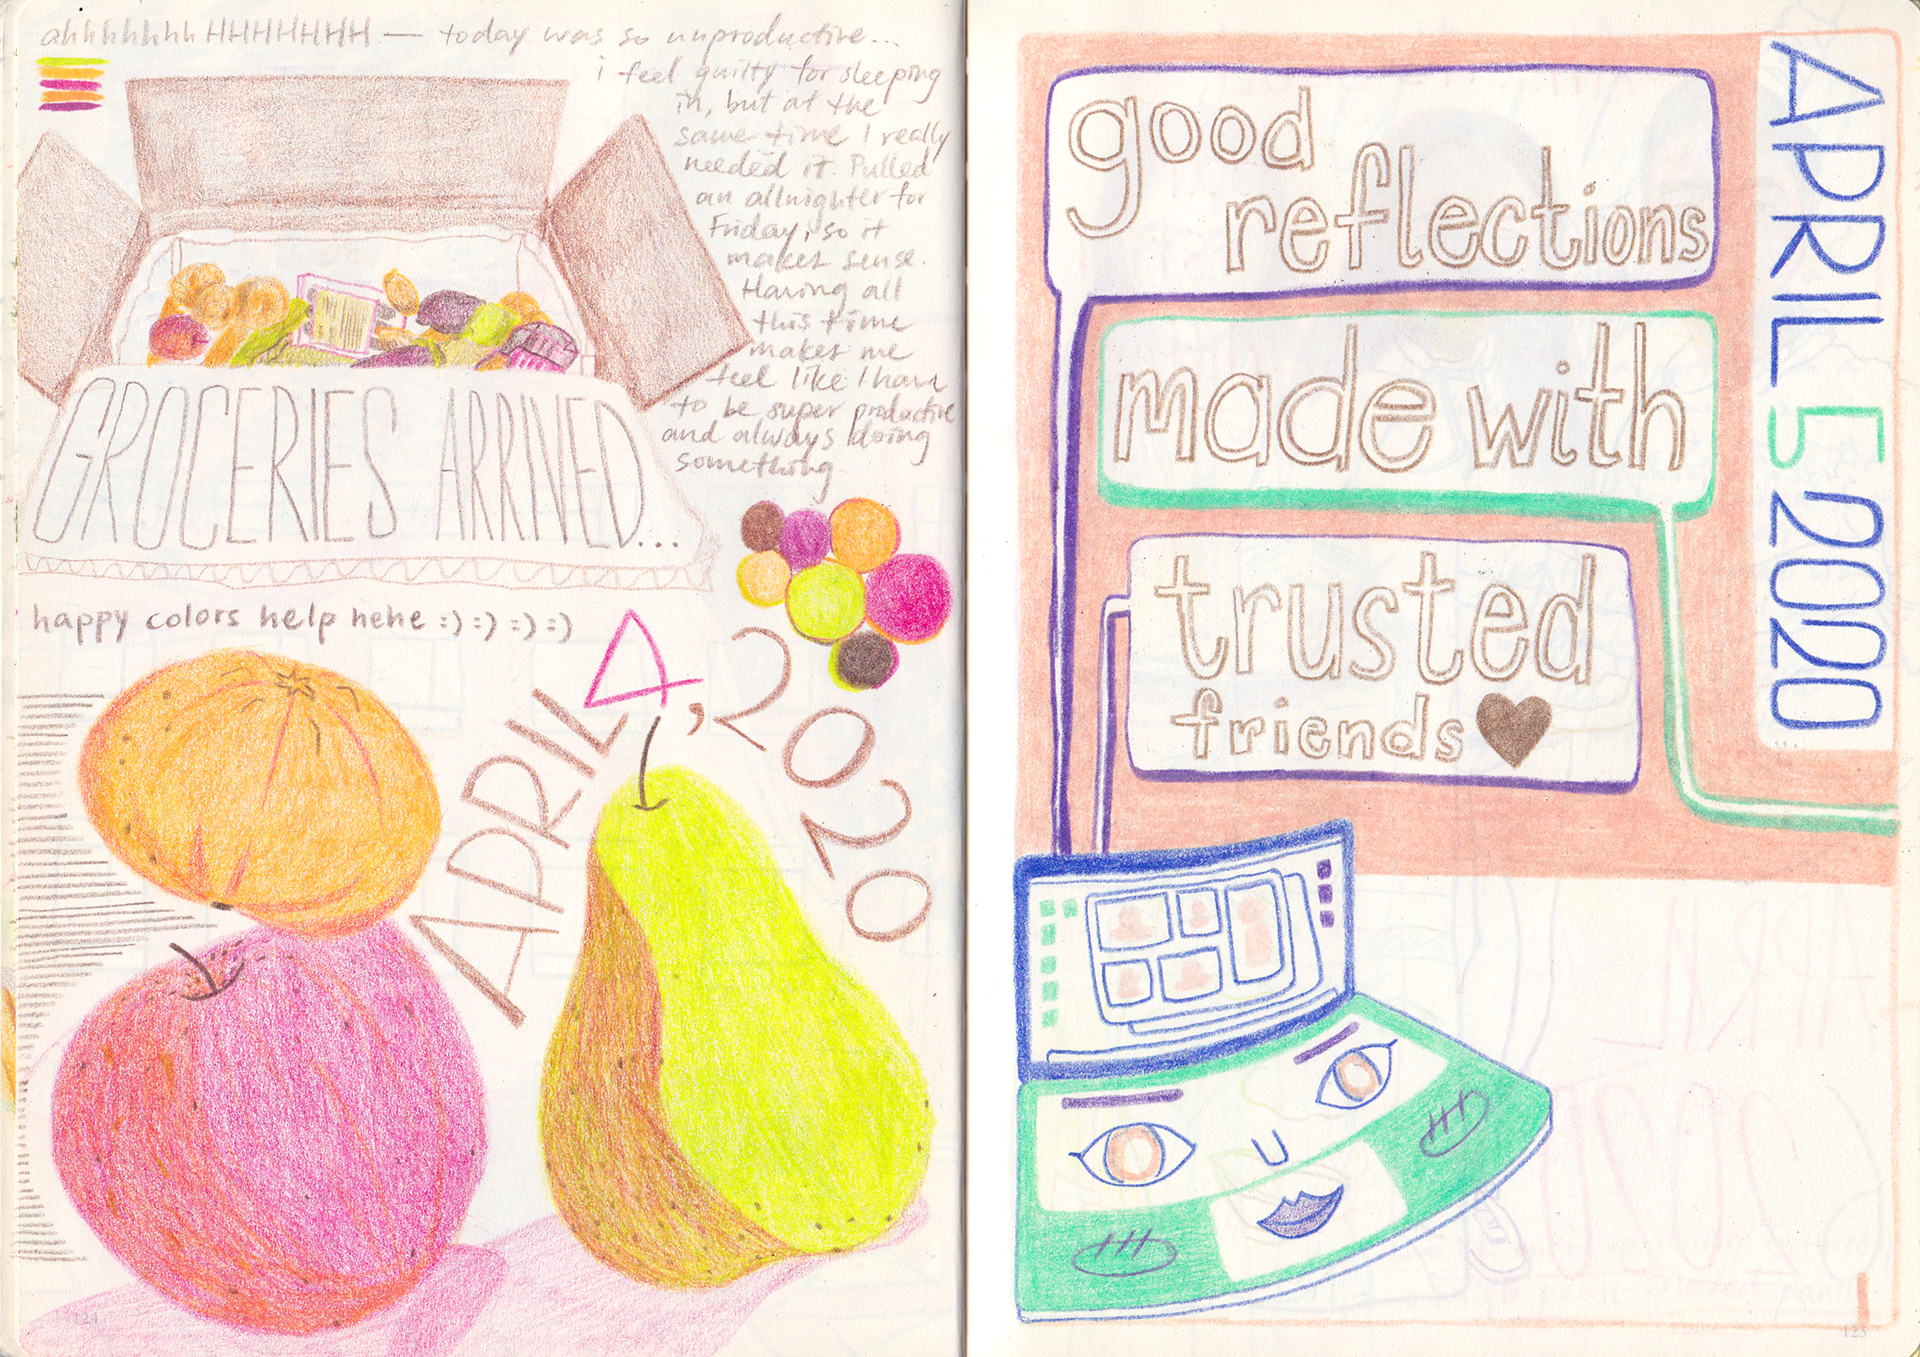 ahhhhhhhHHHHHHH — today was so unproductive...
i feel guilty for sleeping
in, but at the
same time I really
needed it. Pulled
an allnighter for
Friday, so it
makes sense.
Having all
this time
makes me
feel like I have
to be super productive
and always doing
something.
GROCERIES ARRIVED...
happy colors help hehe :) :) :) :)
APRIL 4, 2020
124
good
reflections
made with
trusted
friends
APRIL 5 2020
125